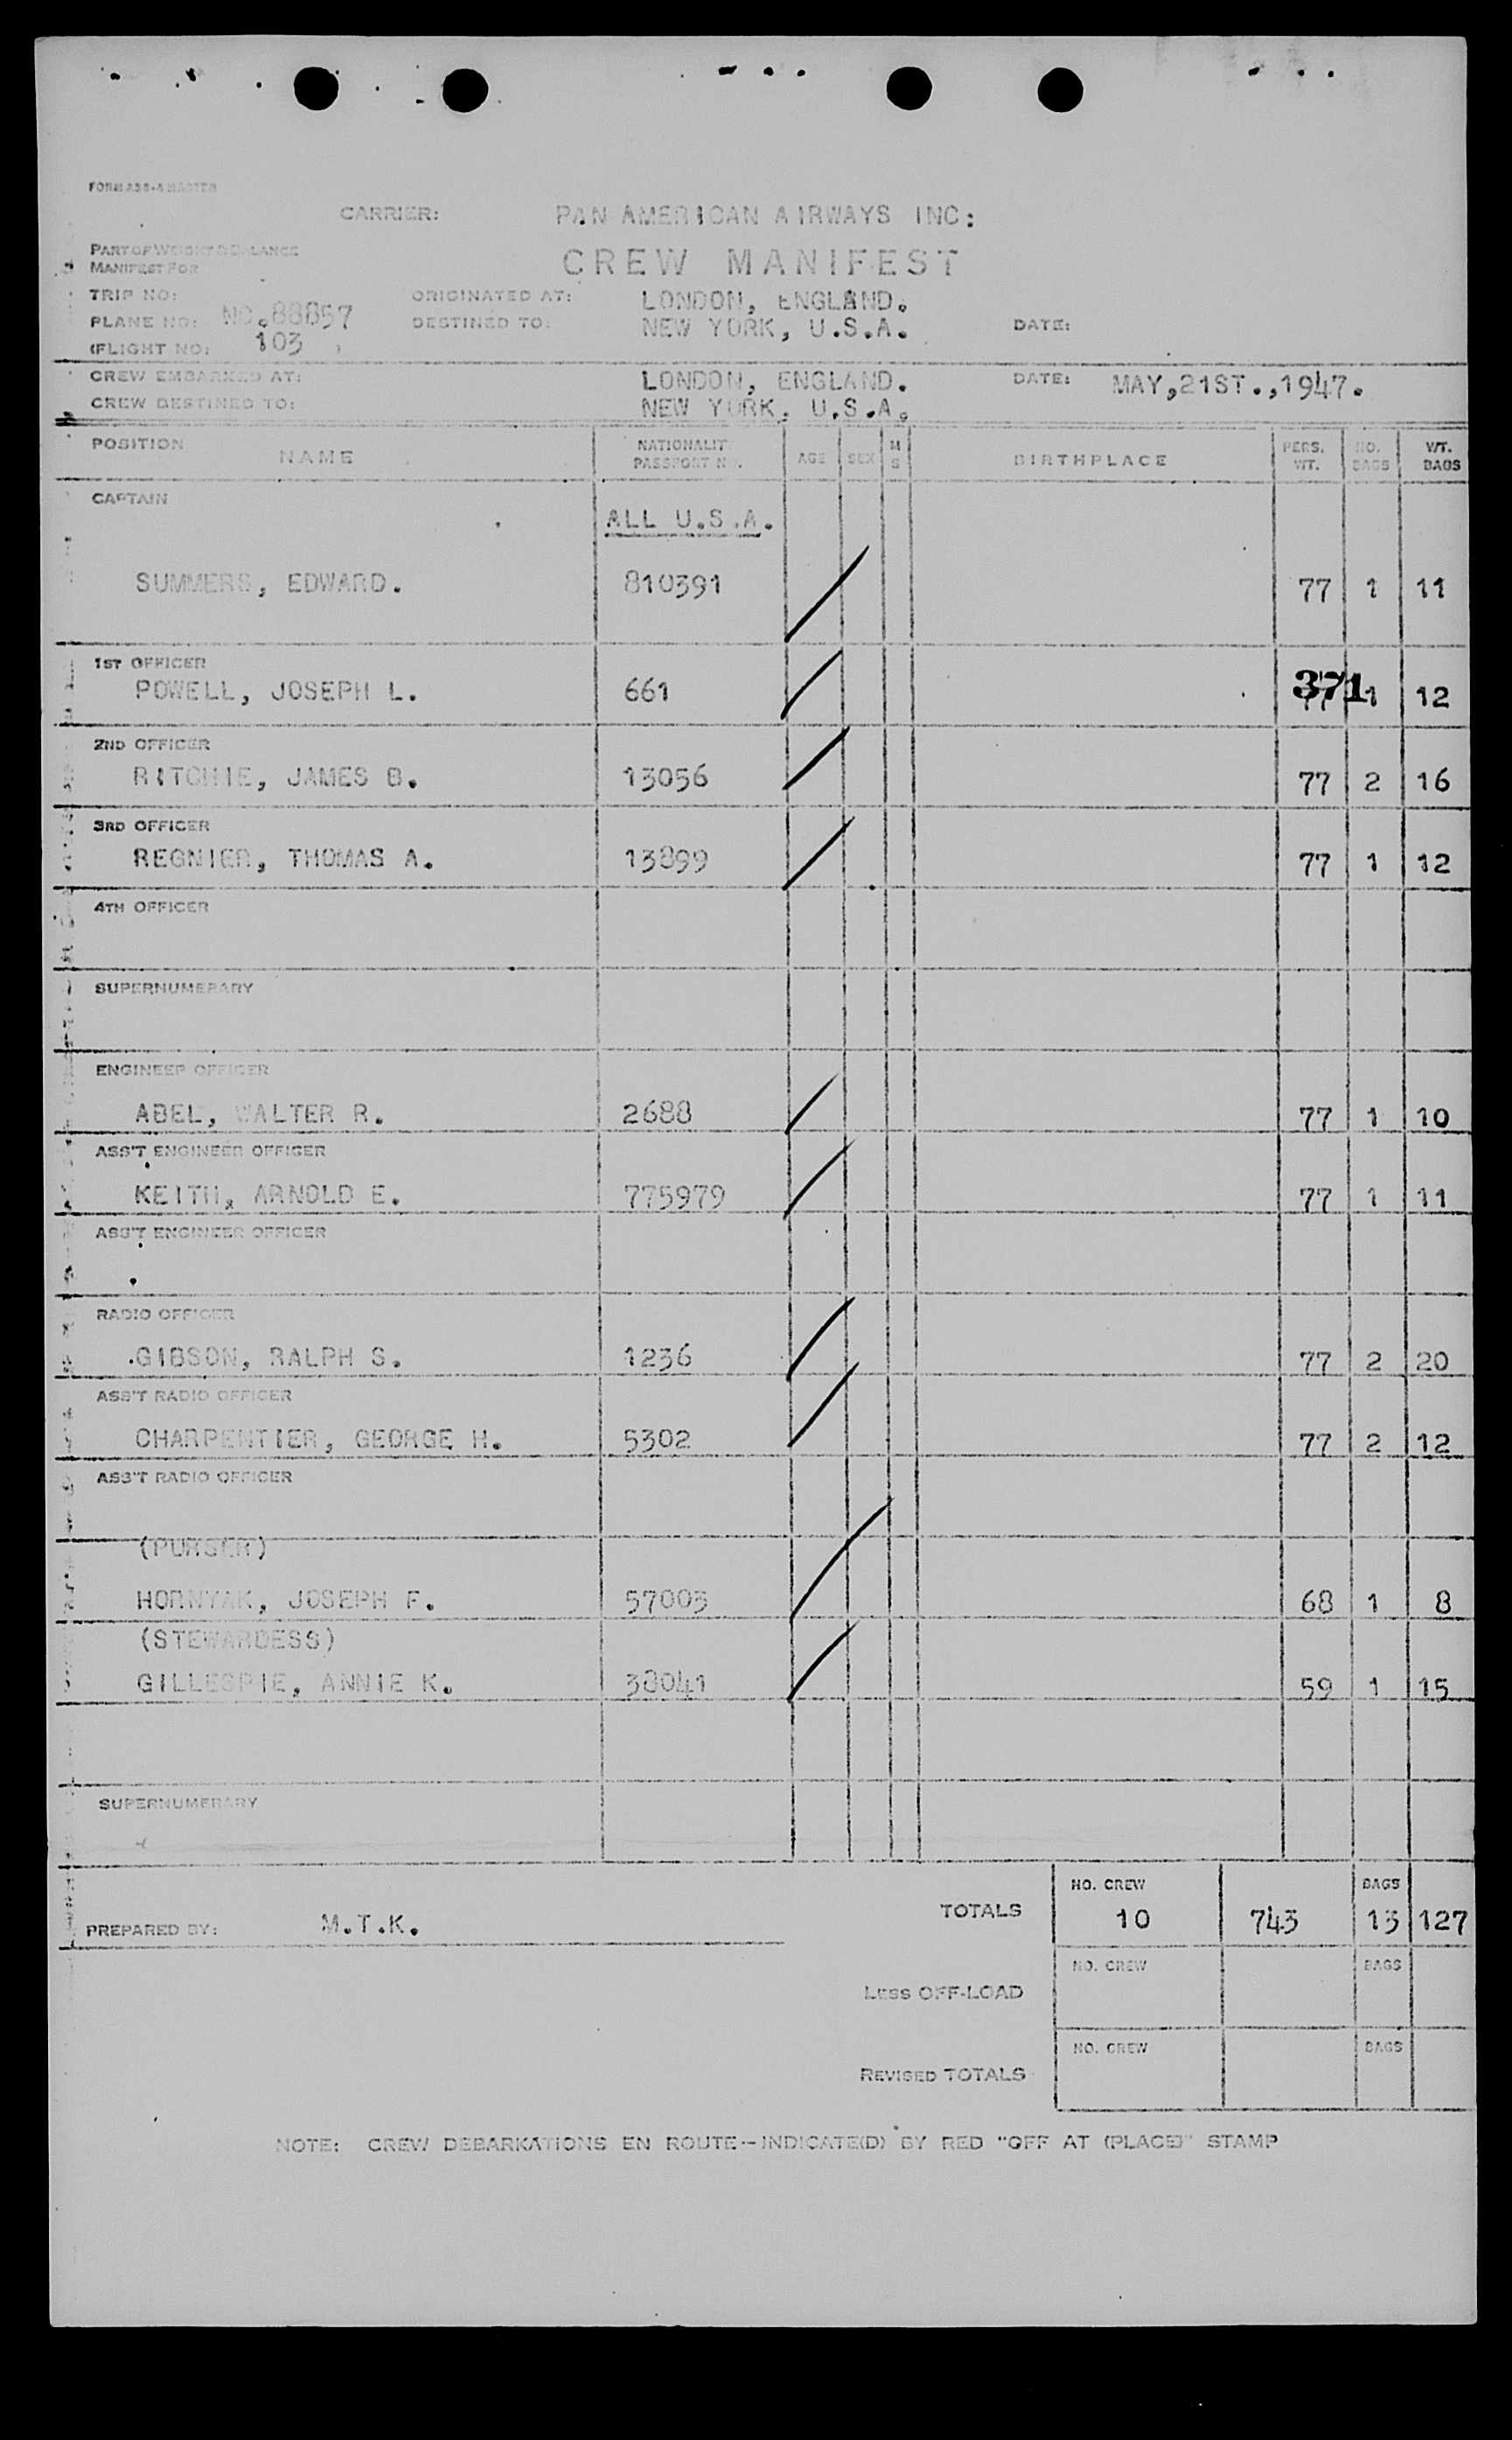 FORM ABB-4 MASTER
CARRIER: PAN AMERICAN AIRWAYS INC:
PART OF WEIGHT & BALANCE
MANIFEST FOR
CREW MANIFEST
TRIP NO: ORIGINATED AT: LONDON, ENGLAND.
PLANE NO: NO.88857 DESTINED TO: NEW YORK, U.S.A. DATE:
(FLIGHT NO: 103 )
CREW EMBARKED AT: LONDON, ENGLAND. DATE: MAY,21ST.,1947.
CREW DESTINED TO: NEW YORK, U.S.A.
POSITION NAME NATIONALITY PASSPORT NO. AGE SEX M S BIRTHPLACE PERS. WT. NO. BAGS WT. BAGS
CAPTAIN
ALL U.S.A.
SUMMERS, EDWARD. 810391 77 1 11
1ST OFFICER
POWELL, JOSEPH L. 661 77 371 1 12
2ND OFFICER
RITCHIE, JAMES B. 13056 77 2 16
3RD OFFICER
REGNIER, THOMAS A. 13899 77 1 12
4TH OFFICER
SUPERNUMERARY
ENGINEER OFFICER
ABEL, WALTER R. 2688 77 1 10
ASS'T ENGINEER OFFICER
KEITH, ARNOLD E. 775979 77 1 11
ASS'T ENGINEER OFFICER
RADIO OFFICER
GIBSON, RALPH S. 1236 77 2 20
ASS'T RADIO OFFICER
CHARPENTIER, GEORGE H. 5302 77 2 12
ASS'T RADIO OFFICER
(PURSER)
HORNYAK, JOSEPH F. 57003 68 1 8
(STEWARDESS)
GILLESPIE, ANNIE K. 38041 59 1 15
SUPERNUMERARY
PREPARED BY: M.T.K. TOTALS NO. CREW 10 743 BAGS 13 127
LESS OFF-LOAD NO. CREW BAGS
REVISED TOTALS NO. CREW BAGS
NOTE: CREW DEBARKATIONS EN ROUTE--INDICATE(D) BY RED "OFF AT (PLACE)" STAMP